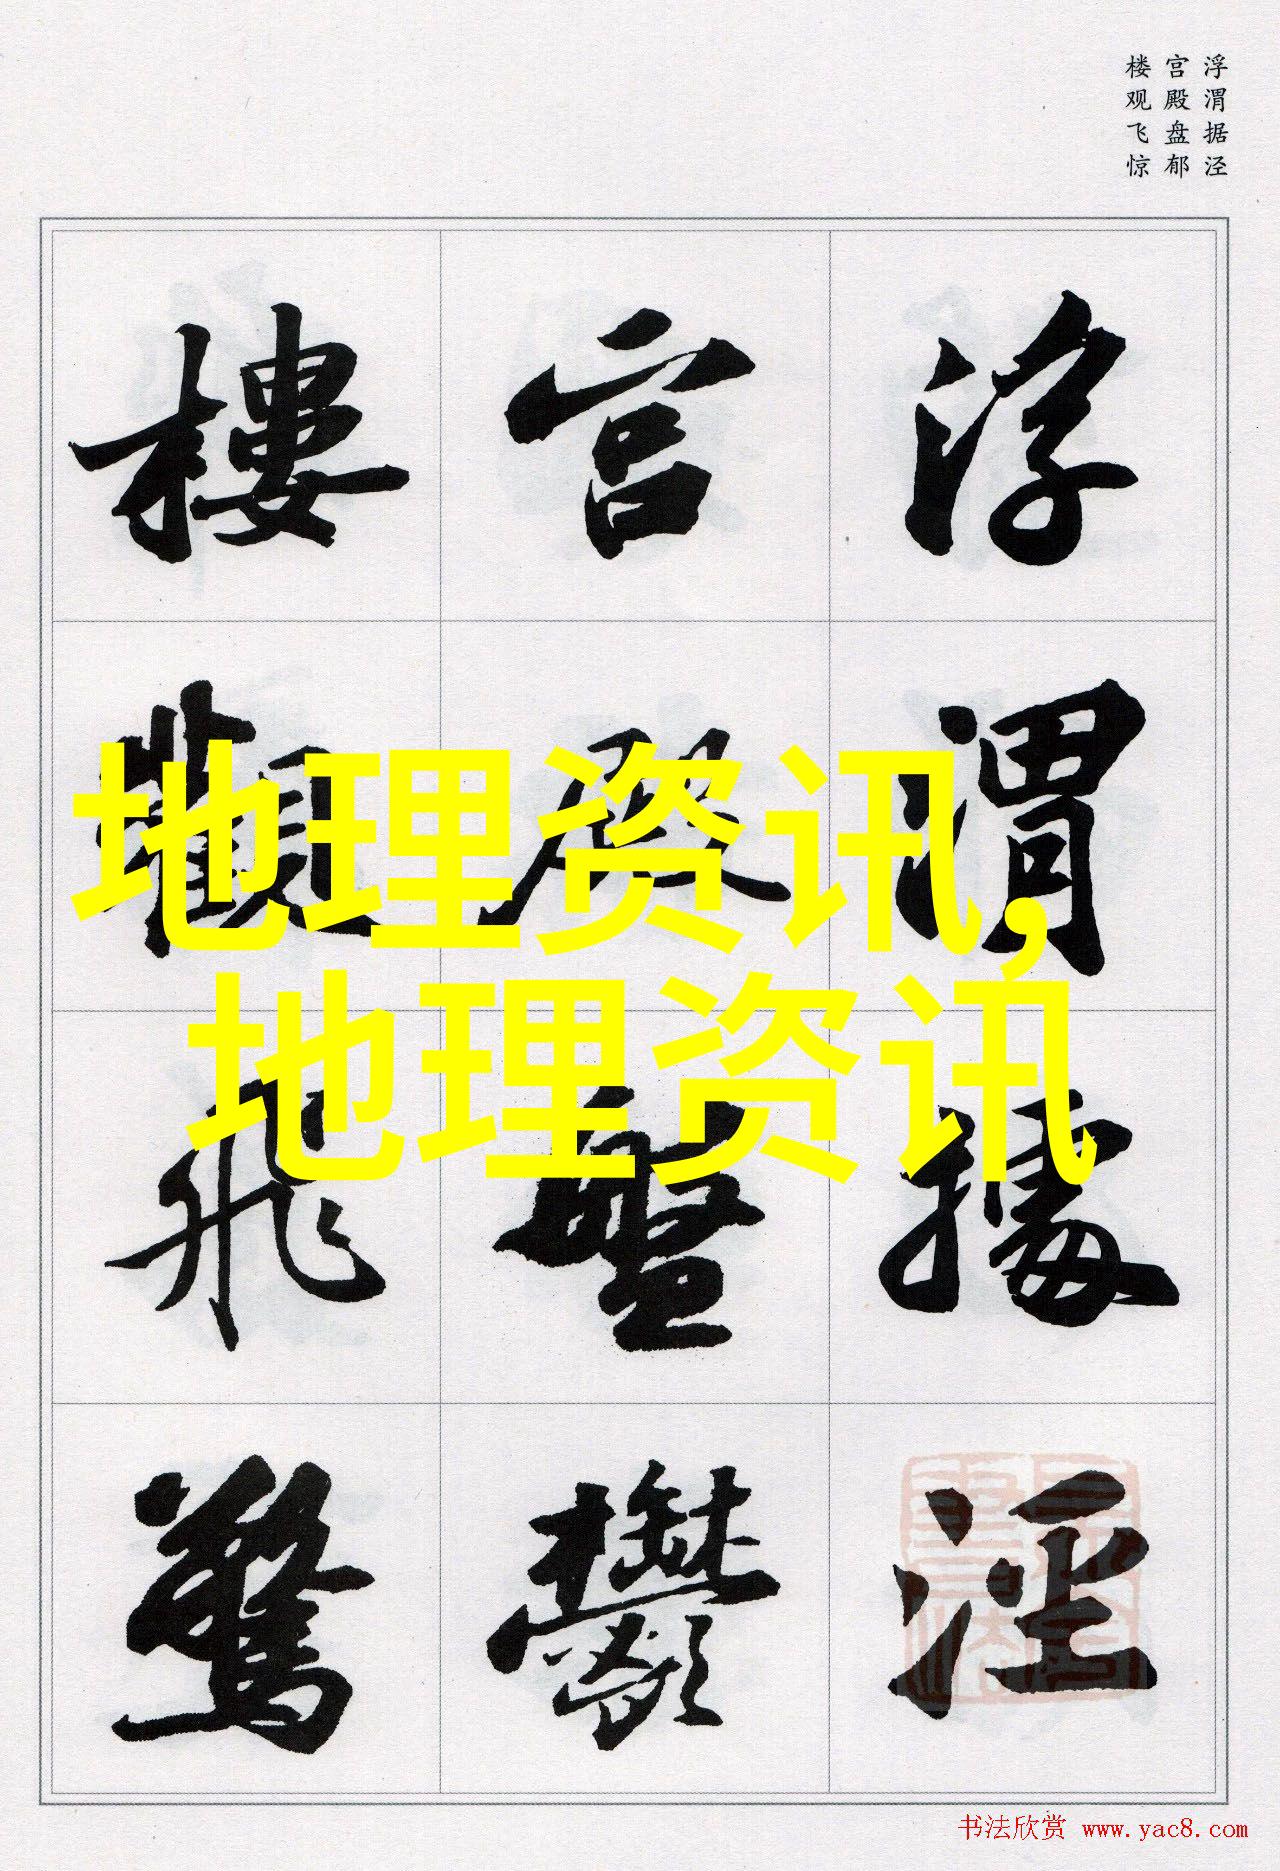 浮渭据泾
宫殿盘郁
楼观飞惊
浮渭據涇
宫殿盤鬱
樓觀飛驚
地理资讯,
地理资讯
书法欣赏 www.yac8.com